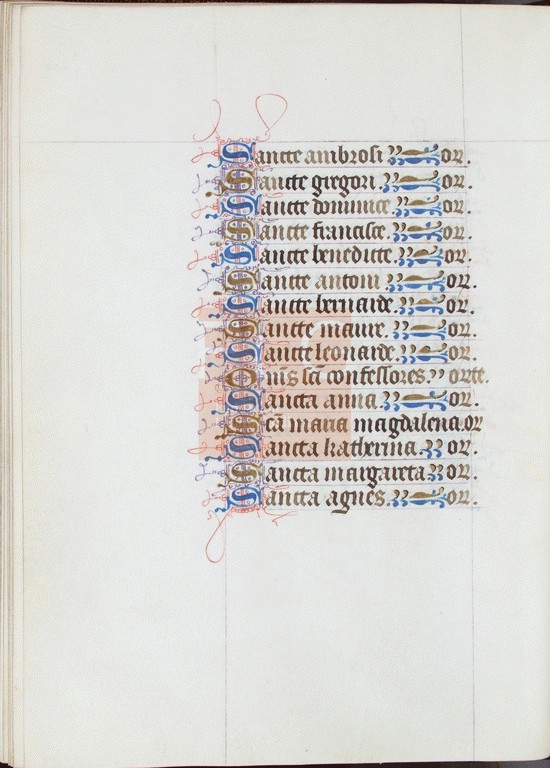 Sancte ambrosi or.
Sancte gregori or.
Sancte dominice or.
Sancte francisce. or.
Sancte benedicte or.
Sancte antoni or.
Sancte bernarde. or.
Sancte maure. or.
Sancte leonarde. or.
Omīs scī confessores. orate.
Sancta anna. or.
Scā maria magdalena. or
Sancta katherina. or.
Sancta margareta or.
Sancta agnes. or.